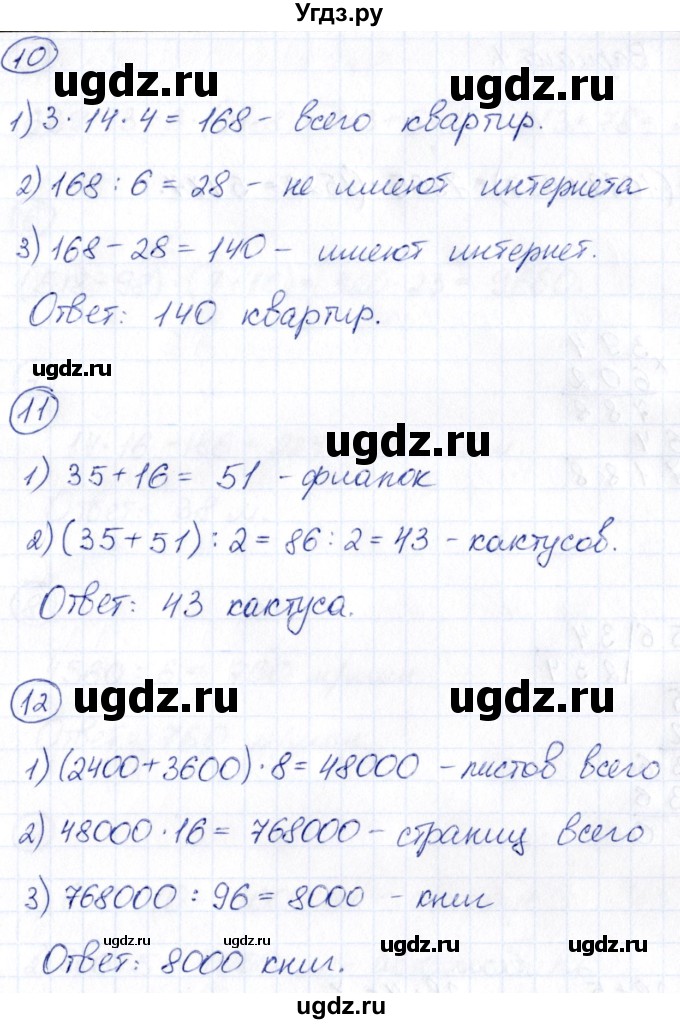 Угдз.ру
10
ugdz.ru ugdz.ru
1) 3 · 14 · 4 = 168 - всего квартир.
2) 168 : 6 = 28 - не имеют интернета
3) 168 - 28 = 140 - имеют интернет.
Ответ: 140 квартир.
ugdz.ru
11
ugdz.ru
1) 35 + 16 = 51 - фиалок
2) (35 + 51) : 2 = 86 : 2 = 43 - кактусов.
Ответ: 43 кактуса.
12
ugdz.ru ugdz.ru
1) (2400 + 3600) · 8 = 48000 - листов всего
2) 48000 · 16 = 768000 - страниц всего
3) 768000 : 96 = 8000 - книг
ugdz.ru ugdz.ru
Ответ: 8000 книг.
ugdz.ru